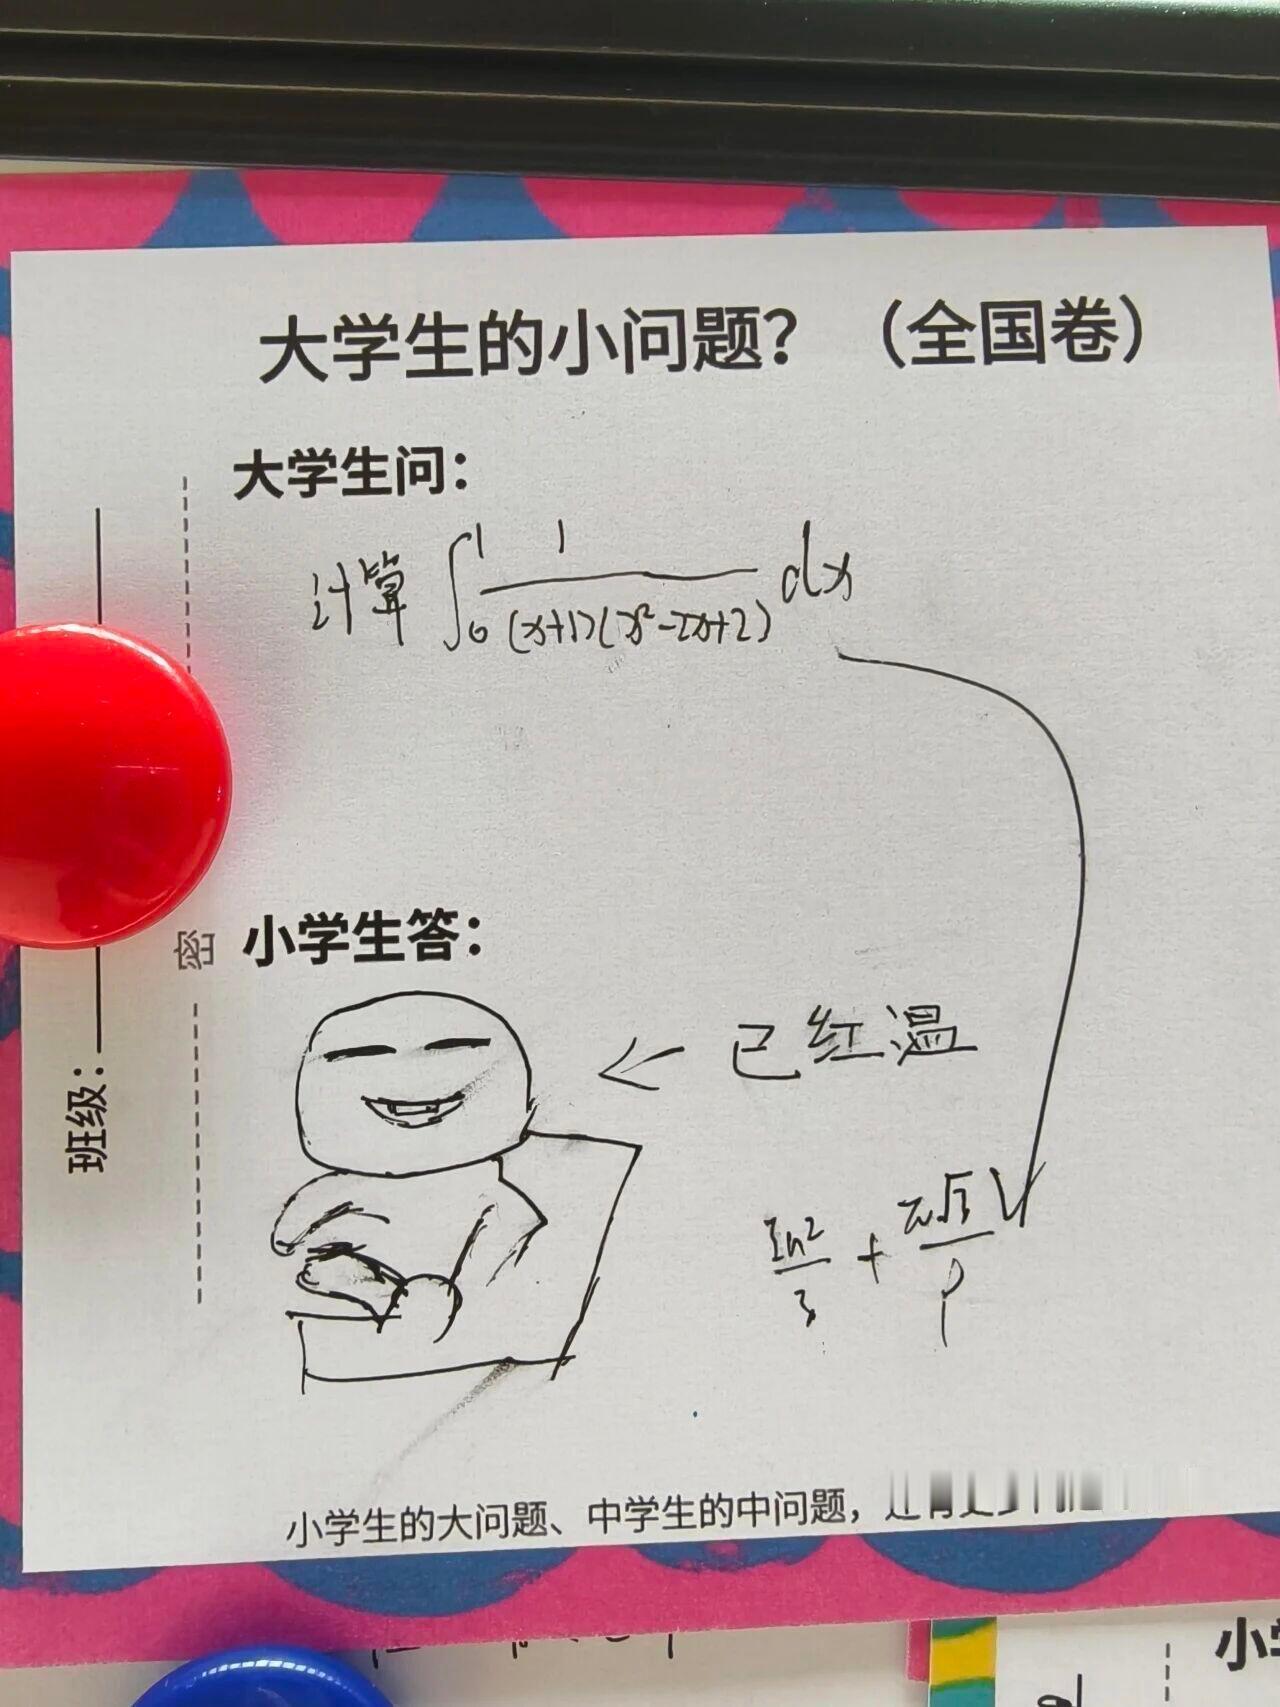 大学生的小问题？（全国卷）
大学生问：
计算 ∫₀¹ 1/((x+1)(x²-2x+2)) dx
密
小学生答：
已红温
班级：
ln2/3 + π√3/9
小学生的大问题、中学生的中问题，还有更多
小学